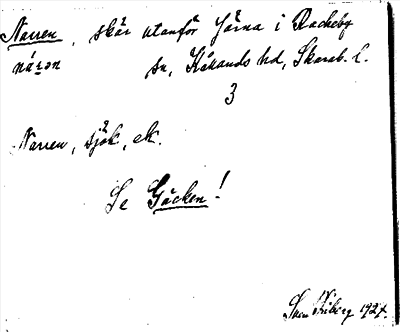 Narren, skär utanför Järna i Rackeby
nárɔn sn, Kållands hd, Skarab. l.
3
Narren, sjök, ek.
Se Gäcken!
Sven Friberg 1927.